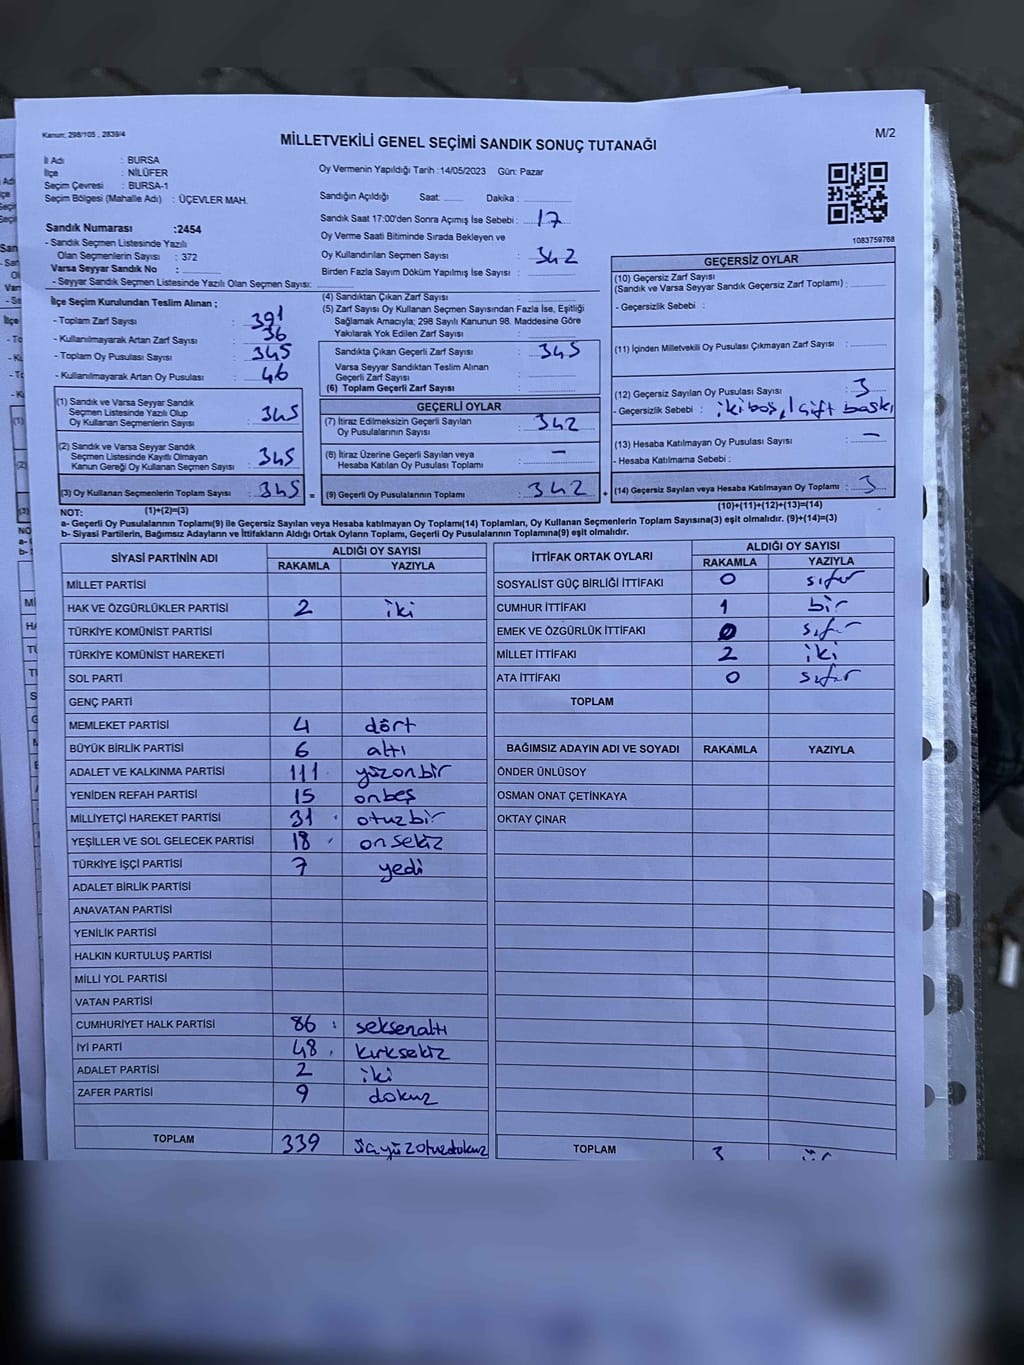 Kanun; 298/105 , 2839/4
MİLLETVEKİLİ GENEL SEÇİMİ SANDIK SONUÇ TUTANAĞI
M/2
İl Adı : BURSA
İlçe : NİLÜFER
Seçim Çevresi : BURSA-1
Seçim Bölgesi (Mahalle Adı) : ÜÇEVLER MAH.
Sandık Numarası :2454
- Sandık Seçmen Listesinde Yazılı
Olan Seçmenlerin Sayısı : 372
Varsa Seyyar Sandık No :
- Seyyar Sandık Seçmen Listesinde Yazılı Olan Seçmen Sayısı:
Oy Vermenin Yapıldığı Tarih :14/05/2023 Gün: Pazar
Sandığın Açıldığı Saat: Dakika :
Sandık Saat 17:00'den Sonra Açımış İse Sebebi : 17
Oy Verme Saati Bitiminde Sırada Bekleyen ve
Oy Kullandırılan Seçmen Sayısı : 342
Birden Fazla Sayım Döküm Yapılmış İse Sayısı :
1083759768
İlçe Seçim Kurulundan Teslim Alınan ;
- Toplam Zarf Sayısı : 391
- Kullanılmayarak Artan Zarf Sayısı : 36
- Toplam Oy Pusulası Sayısı : 345
- Kullanılmayarak Artan Oy Pusulası : 46
(1) Sandık ve Varsa Seyyar Sandık
Seçmen Listesinde Yazılı Olup
Oy Kullanan Seçmenlerin Sayısı : 345
(2) Sandık ve Varsa Seyyar Sandık
Seçmen Listesinde Kayıtlı Olmayan
Kanun Gereği Oy Kullanan Seçmen Sayısı : 345
(3) Oy Kullanan Seçmenlerin Toplam Sayısı : 345 =
(1)+(2)=(3)
(4) Sandıktan Çıkan Zarf Sayısı :
(5) Zarf Sayısı Oy Kullanan Seçmen Sayısından Fazla İse, Eşitliği
Sağlamak Amacıyla; 298 Sayılı Kanunun 98. Maddesine Göre
Yakılarak Yok Edilen Zarf Sayısı :
Sandıkta Çıkan Geçerli Zarf Sayısı : 345
Varsa Seyyar Sandıktan Teslim Alınan
Geçerli Zarf Sayısı :
(6) Toplam Geçerli Zarf Sayısı :
GEÇERLİ OYLAR
(7) İtiraz Edilmeksizin Geçerli Sayılan
Oy Pusulalarının Sayısı : 342
(8) İtiraz Üzerine Geçerli Sayılan veya
Hesaba Katılan Oy Pusulası Toplamı : –
(9) Geçerli Oy Pusulalarının Toplamı : 342 +
GEÇERSİZ OYLAR
(10) Geçersiz Zarf Sayısı
(Sandık ve Varsa Seyyar Sandık Geçersiz Zarf Toplamı) :
- Geçersizlik Sebebi :
(11) İçinden Milletvekili Oy Pusulası Çıkmayan Zarf Sayısı :
(12) Geçersiz Sayılan Oy Pusulası Sayısı : 3
- Geçersizlik Sebebi : iki boş, 1 çift baskı
(13) Hesaba Katılmayan Oy Pusulası Sayısı : –
- Hesaba Katılmama Sebebi :
(14) Geçersiz Sayılan veya Hesaba Katılmayan Oy Toplamı : 3
(10)+(11)+(12)+(13)=(14)
NOT:
a- Geçerli Oy Pusulalarının Toplamı(9) ile Geçersiz Sayılan veya Hesaba katılmayan Oy Toplamı(14) Toplamları, Oy Kullanan Seçmenlerin Toplam Sayısına(3) eşit olmalıdır. (9)+(14)=(3)
b- Siyasi Partilerin, Bağımsız Adayların ve İttifakların Aldığı Ortak Oyların Toplamı, Geçerli Oy Pusulalarının Toplamına(9) eşit olmalıdır.
SİYASİ PARTİNİN ADI ALDIĞI OY SAYISI
RAKAMLA YAZIYLA
MİLLET PARTİSİ
HAK VE ÖZGÜRLÜKLER PARTİSİ 2 iki
TÜRKİYE KOMÜNİST PARTİSİ
TÜRKİYE KOMÜNİST HAREKETİ
SOL PARTİ
GENÇ PARTİ
MEMLEKET PARTİSİ 4 dört
BÜYÜK BİRLİK PARTİSİ 6 altı
ADALET VE KALKINMA PARTİSİ 111 yüzonbir
YENİDEN REFAH PARTİSİ 15 onbeş
MİLLİYETÇİ HAREKET PARTİSİ 31 otuzbir
YEŞİLLER VE SOL GELECEK PARTİSİ 18 onsekiz
TÜRKİYE İŞÇİ PARTİSİ 7 yedi
ADALET BİRLİK PARTİSİ
ANAVATAN PARTİSİ
YENİLİK PARTİSİ
HALKIN KURTULUŞ PARTİSİ
MİLLİ YOL PARTİSİ
VATAN PARTİSİ
CUMHURİYET HALK PARTİSİ 86 seksenaltı
İYİ PARTİ 48 kırksekiz
ADALET PARTİSİ 2 iki
ZAFER PARTİSİ 9 dokuz
TOPLAM 339 üçyüzotuzdokuz
İTTİFAK ORTAK OYLARI ALDIĞI OY SAYISI
RAKAMLA YAZIYLA
SOSYALİST GÜÇ BİRLİĞİ İTTİFAKI 0 sıfır
CUMHUR İTTİFAKI 1 bir
EMEK VE ÖZGÜRLÜK İTTİFAKI 0 sıfır
MİLLET İTTİFAKI 2 iki
ATA İTTİFAKI 0 sıfır
TOPLAM
BAĞIMSIZ ADAYIN ADI VE SOYADI RAKAMLA YAZIYLA
ÖNDER ÜNLÜSOY
OSMAN ONAT ÇETİNKAYA
OKTAY ÇINAR
TOPLAM 3 üç